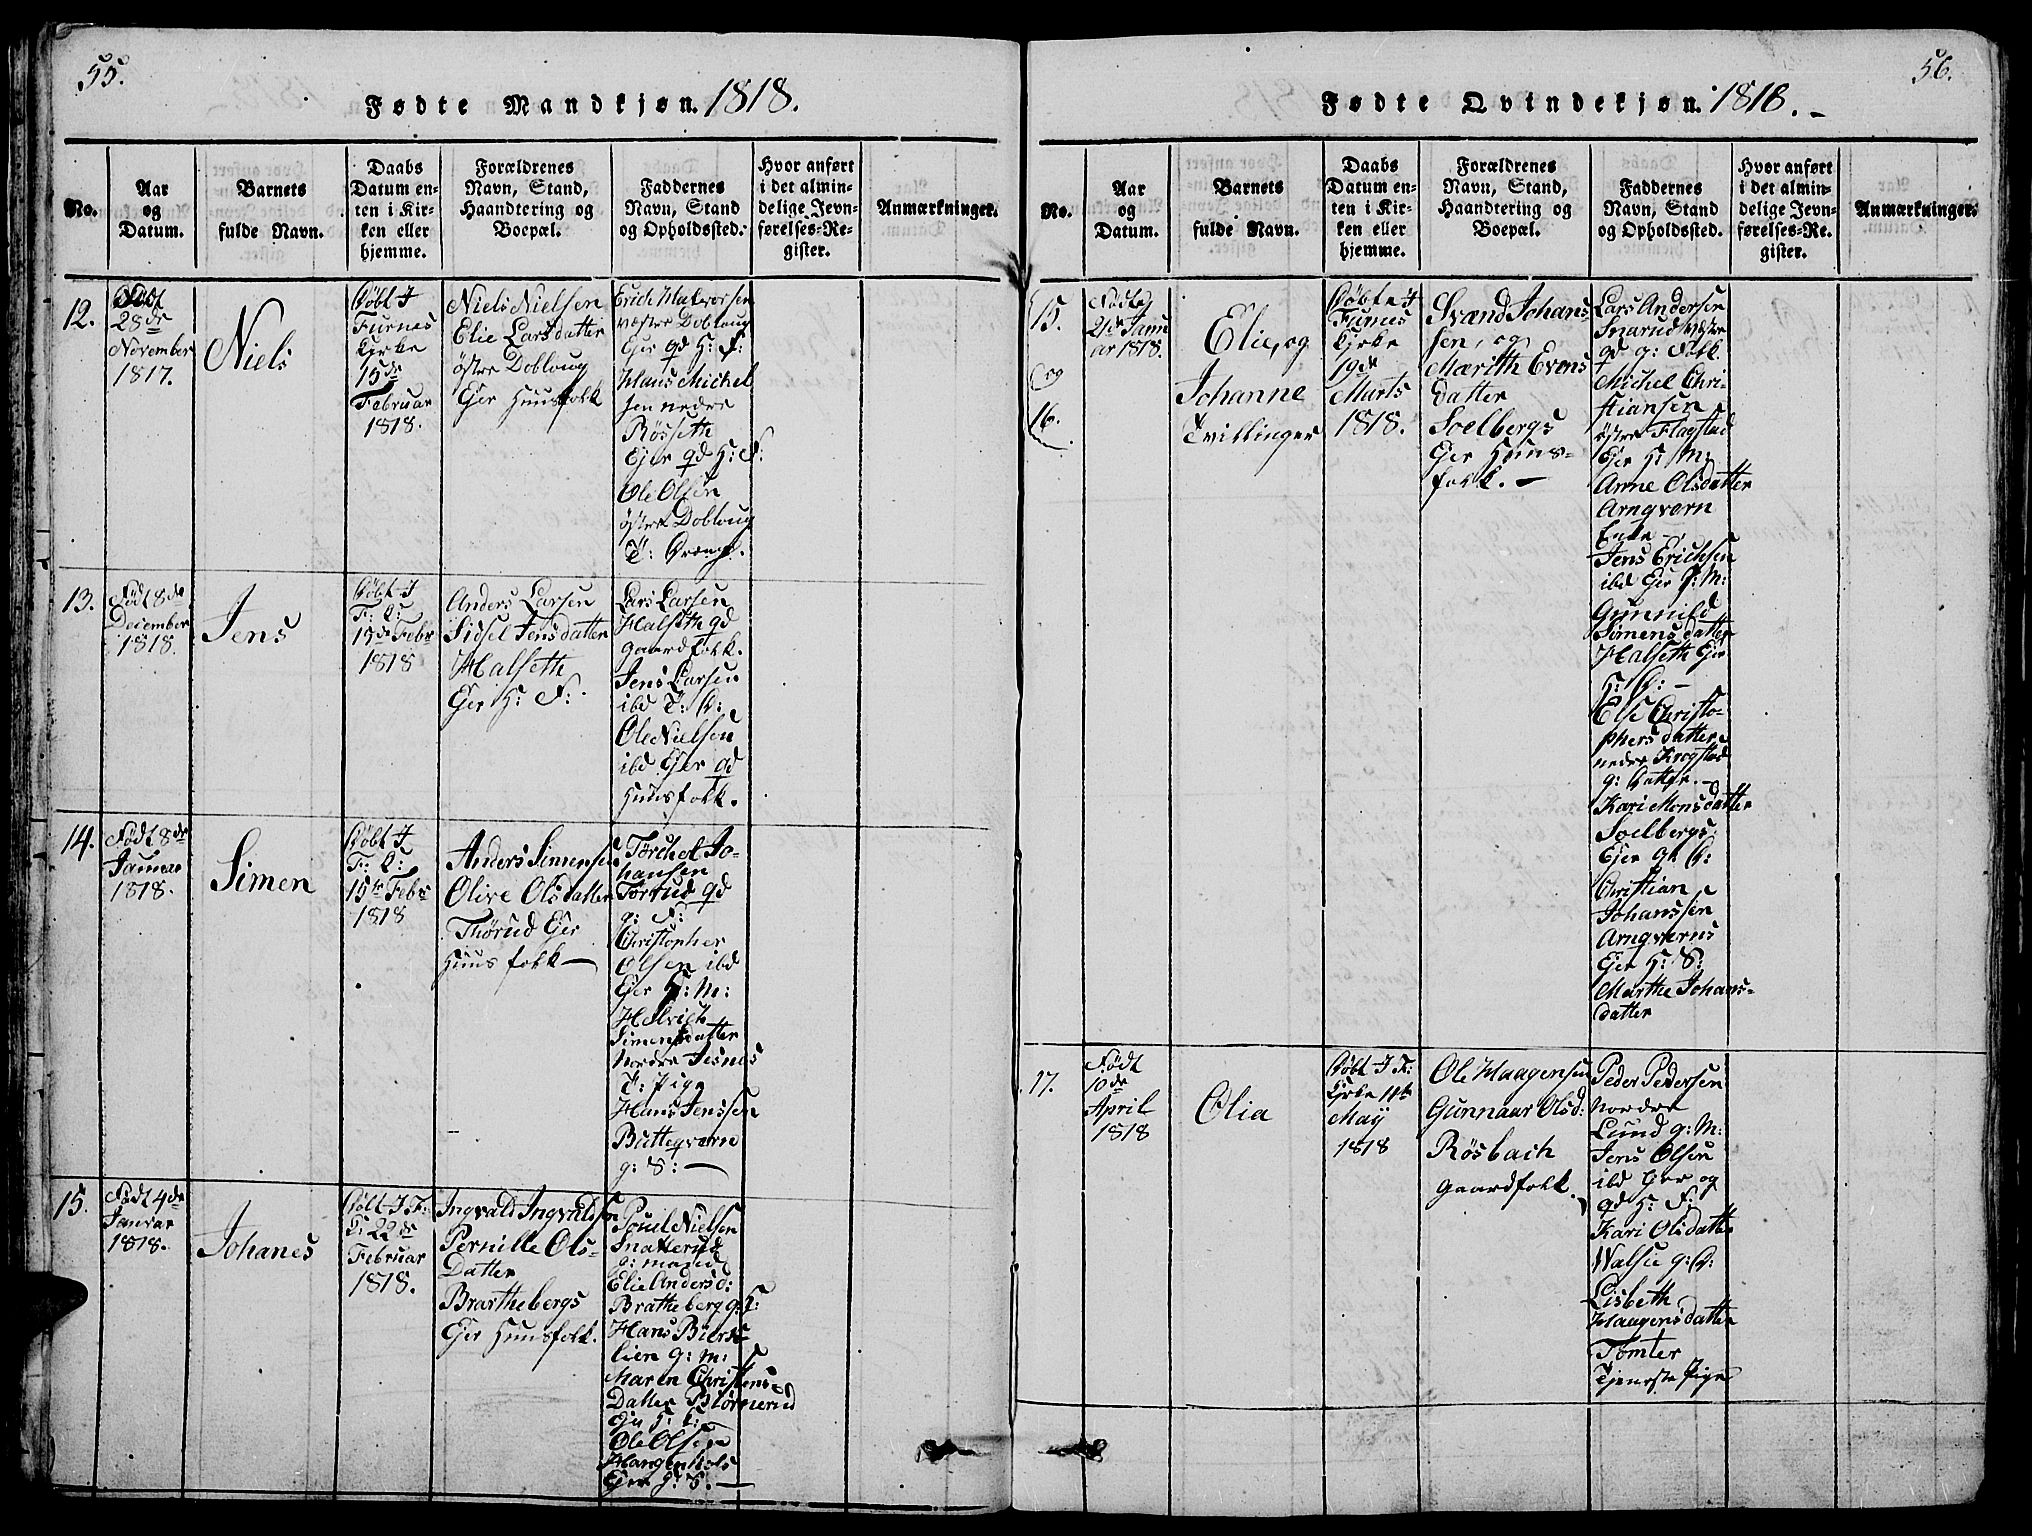 55.
Fødte Mandkjøn. 1818.
No.
Aar
og
Datum.
Barnets
fulde Navn.
Daabs
Datum en-
ten i Kir-
ken eller
hjemme.
Forældrenes
Navn, Stand,
Haandtering og
Boepæl.
Faddernes
Navn, Stand
og Opholdssted.
Hvor anført
i det almin-
delige Jevn-
førelses-Re-
gister.
Anmærkninger.
12.
Født
28de
November
1817.
Niels
Døbt I
Furnes
Kirke
15de
Februar
1818.
Niels Nielsen
Elie Larsdatter
østre Dobloug
Eier Huusfolk
Erich Halvorsen
væstre Dobloug
Eier gd H: F:
Hans Michel
sen nedre
Røsseth
Ejer gd H: F:
Ole Olsen
østre Dobloug
T: Dreng.
13.
Født 8de
December
1818.
Jens
Døbt I
F: K:
15de Febr
1818
Anders Larsen
Sidsel Jensdatter
Halseth
Ejer H: F:
Lars Larsen
Halseth gd
gaardfolk.
Jens Larsen
ibd T: D:
Ole Nielsen
ibd Ejer gd
Huusfolk.
14.
Født 8de
Januar
1818.
Simen
Døbt I
F: K:
15de Febr
1818
Anders Simensen
Olive Olsdatter
Thørud Ejer
Huusfolk —
Torchel Jo-
hansen
Torrud gd
g: F:
Christopher
Olsen ibd
Ejer H: M:
Helvich
Simensdatter
Nordre Jesnes
T: Pige
Hans Jenssen
Butteqvern
g: S: —
15.
Født 4de
Januar
1818.
Johanes
Døbt I F:
K: 22de
Februar
1818.
Ingvald Ingvaldsen
Pernille Ols-
Datter
Brarthebergs
Ejer Huusfolk.
Poul Nielsen
Snatterud
g: mand
Elie Andersd:
Bratheberg g: K:
Hans Bierke
lien g: M:
Maren Christens
Datter Biørnerud
Ejer H: K:
Ole Olsen
Hangenhols
Ejer H: S: —
56.
Fødte Qvindekjøn. 1818. –
No.
Aar
og
Datum.
Barnets
fulde Navn.
Daabs
Datum en-
ten i Kir-
ken eller
hjemme.
Forældrenes
Navn, Stand,
Haandtering og
Boepæl.
Faddernes
Navn, Stand
og Opholdssted.
Hvor anført
i det almin-
delige Jevn-
førelses-Re-
gister.
Anmærkninger.
15.
og
16.
Fødte
21de Janu
ar 1818.
Elie, og
Johanne
Tvillinger
Døbte I
Furnes
Kirke
19de
Marts
1818.
Svend Johans
sen, og
Mærith Evens
datter
Soelbergs
Ejer Huus-
folk. —
Lars Andersen
Snarud væstre
gd g: Folk.
Michel Chri-
stiansen
østre Flagstad
Ejer H: M:
Anne Olsdatter
Arnqvern
Enke –
Jens Erichsen
ibd Ejer H: M:
Gunnild
Simensdatter
Halseth Ejer
H: D: —
Else Christo-
phersdatter
nedre Krogstad
g: Datter. —
Kari Monsdatter
Soelbergs
Ejer gd D:
Christian
Johanssen
Arnqverns
Ejer H: S:
Marthe Johans-
datter
17.
Født
10de
April
1818
Olia
Døbt I F:
Kirke 11te
May
1818
Ole Haagensen
Gunnaar Olsd:
Røsbach
gaardfolk.
Peder Pedersen
Nordre
Lund g: M:
Jens Olsen
ibd Ejer og
gd H: F:
Kari Olsdatter
Valsie g: D:
Lisbeth
Haagensdatter
Tomter
Tjeneste Pige